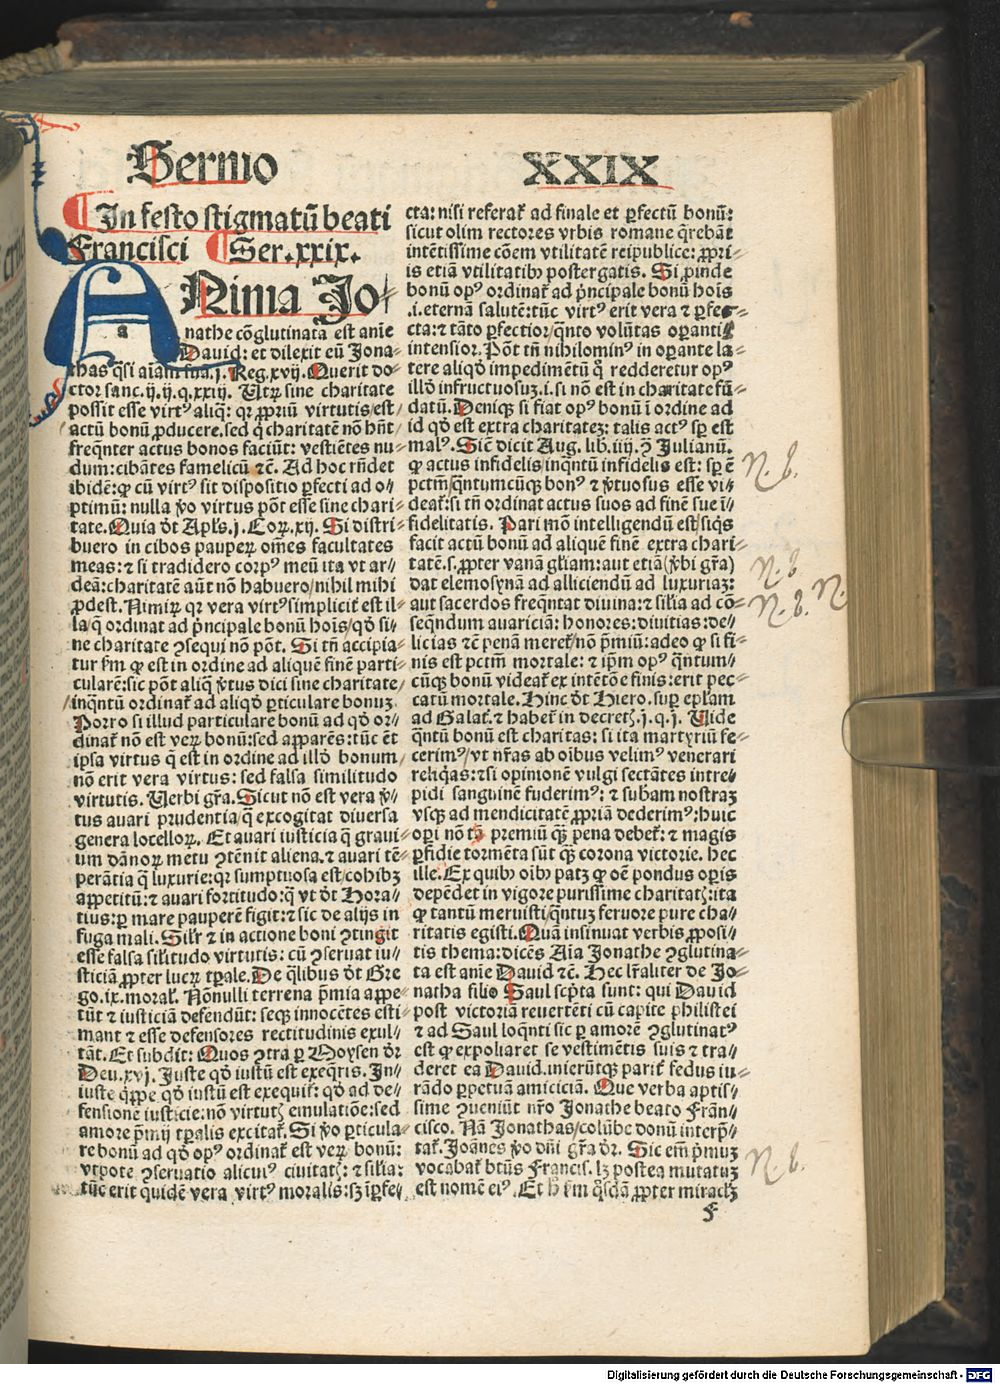 Sermo
XXIX
¶ In festo stigmatū beati
Francisci ¶ Ser.xxix.
ANima Jo⸗
nathe cōglutinata est anie
Dauid: et dilexit eū Jona⸗
thas q̄si aīam suā.j. Reg.xvij. Querit do⸗
ctor sanc.ij.ij.q.xxiij. Utrꝫ sine charitate
possit esse virtꝰ aliq̄: qꝛ ꝓpriū virtutis/est
actū bonū ꝓducere. sed q̄ charitatē nō hn̄t/
freq̄nter actus bonos faciūt: vestiētes nu⸗
dum: cibātes famelicū ⁊c̄. Ad hoc rn̄det
ibidē: ꝙ cū virtꝰ sit dispositio ꝑfecti ad o⸗
ptimū: nulla ꝟo virtus pōt esse sine chari⸗
tate. Quia dt̄ Apl's.j. Coꝝ.xij. Si distri⸗
buero in cibos pauperꝝ om̄es facultates
meas: ⁊ si tradidero corpꝰ meū ita vt ar⸗
deā: charitatē aūt nō habuero/nihil mihi
ꝓdest. Nimiꝝ qꝛ vera virtꝰ simplicit̄ est il⸗
la/q̄ ordinat ad p̄ncipale bonū hoīs/qđ si⸗
ne charitate ꝯsequi nō pōt. Si tn̄ accipia⸗
tur fm ꝙ est in ordine ad aliquē finē parti⸗
cularē: sic pōt aliq̄ ꝟtus dici sine charitate/
inq̄ntū ordinat̄ ad aliqđ ꝑticulare bonuꝫ
Porro si illud particulare bonū ad qđ or⸗
dinat̄ nō est verꝝ bonū: sed apparēs: tūc ēt
ipsa virtus q̄ est in ordine ad illđ bonum
nō erit vera virtus: sed falsa similitudo
virtutis. Uerbi gr̄a. Sicut nō est vera ꝟ⸗
tus auari prudentia/q̄ excogitat diuersa
genera locelloꝝ. Et auari iusticia q̄ graui⸗
um dānoꝝ metu ꝯtēnit aliena. ⁊ auari tē⸗
perātia q̄ luxurie: qꝛ sumptuosa est/cohibꝫ
appetitū: ⁊ auari fortitudo: q̄ vt dt̄ Hora⸗
tius: ꝑ mare pauperē figit: ⁊ sic de alijs in
fuga mali. Sil'r ⁊ in actione boni ꝯtingit
esse falsa sil'itudo virtutis: cū ꝯseruat iu⸗
sticiā ꝓpter lucꝝ tp̄ale. De q̄libus dt̄ Gre
go.ix.moral'. Nōnulli terrena p̄mia appe⸗
tūt ⁊ iusticiā defendūt: seqꝫ innocētes esti⸗
mant ⁊ esse defensores rectitudinis exul⸗
tāt. Et subdit: Quos ꝯtra ꝑ Moysen dr̄
Deu.xvj. Juste qđ iustū est exeq̄ris. In⸗
iuste q̄ppe qđ iustū est exequit̄: qđ ad de⸗
fensionē iusticie: nō virtutꝭ emulatiōe: sed
amore p̄mij tp̄alis excitat̄. Si ꝟo ꝑticula⸗
re bonū ad qđ opꝰ ordinat̄ est verꝝ bonū:
vtpote ꝯseruatio alicuiꝰ ciuitatꝭ: ⁊ sil'ia:
tūc erit quidē vera virtꝰ moralis: sꝫ īꝑfe⸗
cta: nisi referat̄ ad finale et ꝑfectū bonū:
sicut olim rectores vrbis romane q̄rebāt
intētissime cōem vtilitatē reipublice: ꝓpri⸗
is etiā vtilitatibꝰ postergatis. Si ꝓinde
bonū opꝰ ordinat̄ ad p̄ncipale bonū hoīs
.i. eternā salutē: tūc virtꝰ erit vera ⁊ ꝑfe⸗
cta: ⁊ tāto ꝑfectior/q̄nto volūtas oꝑantis
intensior. Pōt tn̄ nihilominꝰ in oꝑante la⸗
tere aliqđ impedimētū q̄ redderetur opꝰ
illđ infructuosuꝫ.i. si nō est in charitate fū⸗
datū. Deniqꝫ si fiat opꝰ bonū ī ordine ad
id qđ est extra charitatēꝫ: talis actꝰ sꝑ est
malꝰ. Sic̄ dicit Aug. lib.iiij. ꝯ̄ Julianū.
ꝙ actus infidelis/inq̄ntū infidelis est: sꝑ ē
pctm̄/q̄ntumcūqꝫ bonꝰ ⁊ ꝟtuosus esse vi⸗
deat̄: si tn̄ ordinat actus suos ad finē sue ī⸗
fidelitatis. Pari mō intelligendū est/siq̄s
facit actū bonū ad aliquē finē extra chari⸗
tatē.s. ꝓpter vanā gl'iam: aut etiā (ꝟbi gr̄a)
dat elemosynā ad alliciendū ad luxuriaꝫ:
aut sacerdos freq̄ntat diuina: ⁊ sil'ia ad cō⸗
seq̄ndum auariciā: honores: diuitias: de⸗
licias ⁊c̄ penā meret̄/nō p̄miū: adeo ꝙ si fi⸗
nis est pctm̄ mortale: ⁊ ip̄m opꝰ q̄ntum⸗
cūqꝫ bonū videat̄ ex intētōe finis: erit pec⸗
catū mortale. Hinc dt̄ Hiero. suꝑ epl'am
ad Galat̄. ⁊ habet̄ in decretꝭ.j.q.j. Uide
q̄ntū bonū est charitas: si ita martyriū fe⸗
cerimꝰ/vt nr̄as ab oībus velimꝰ venerari
reliq̄as: ⁊ si opinionē vulgi sectātes intre⸗
pidi sanguinē fuderimꝰ: ⁊ sub̄am nostraꝫ
vsqꝫ ad mendicitatē ꝓpriā dederimꝰ: huic
oꝑi nō tm̄ premiū q̄ꝫ pena debet̄: ⁊ magis
ꝑfidie tormēta sūt q̄ꝫ corona victorie. hec
ille. Ex quibꝰ oībꝰ patꝫ ꝙ oē pondus oꝑis
depēdet in vigore purissime charitatꝭ: ita
ꝙ tantū meruisti/q̄ntuꝫ feruore pure cha⸗
ritatis egisti. Quā insinuat verbis ꝓposi⸗
tis thema: dicēs Aīa Jonathe ꝯglutina⸗
ta est anie Dauid ⁊c̄. Hec lr̄aliter de Jo⸗
natha filio Saul scp̄ta sunt: qui Dauid
post victoriā reuertēti cū capite philistei
⁊ ad Saul loq̄nti sic ꝑ amorē ꝯglutinatꝰ
est ꝙ expoliaret se vestimētis suis ⁊ tra⸗
deret ea Dauid. inierūtqꝫ parit̄ fedus iu⸗
rādo ꝑpetuam amiciciā. Que verba aptis⸗
sime ꝯueniūt nr̄o Jonathe beato Frān⸗
cisco. Nā Jonathas/colūbe donū interp̄⸗
tat̄. Joānes ꝟo dn̄i gr̄a dr̄. Sic em̄ p̄muꝫ
vocabat̄ btūs Francis. lꝫ postea mutatuꝫ
est nomē eiꝰ. Et h̄ fm q̄sdā ꝓpter miraclꝫ
F
N. b.
N. b
N. b. N.
N. b.
Digitalisierung gefördert durch die Deutsche Forschungsgemeinschaft - DFG